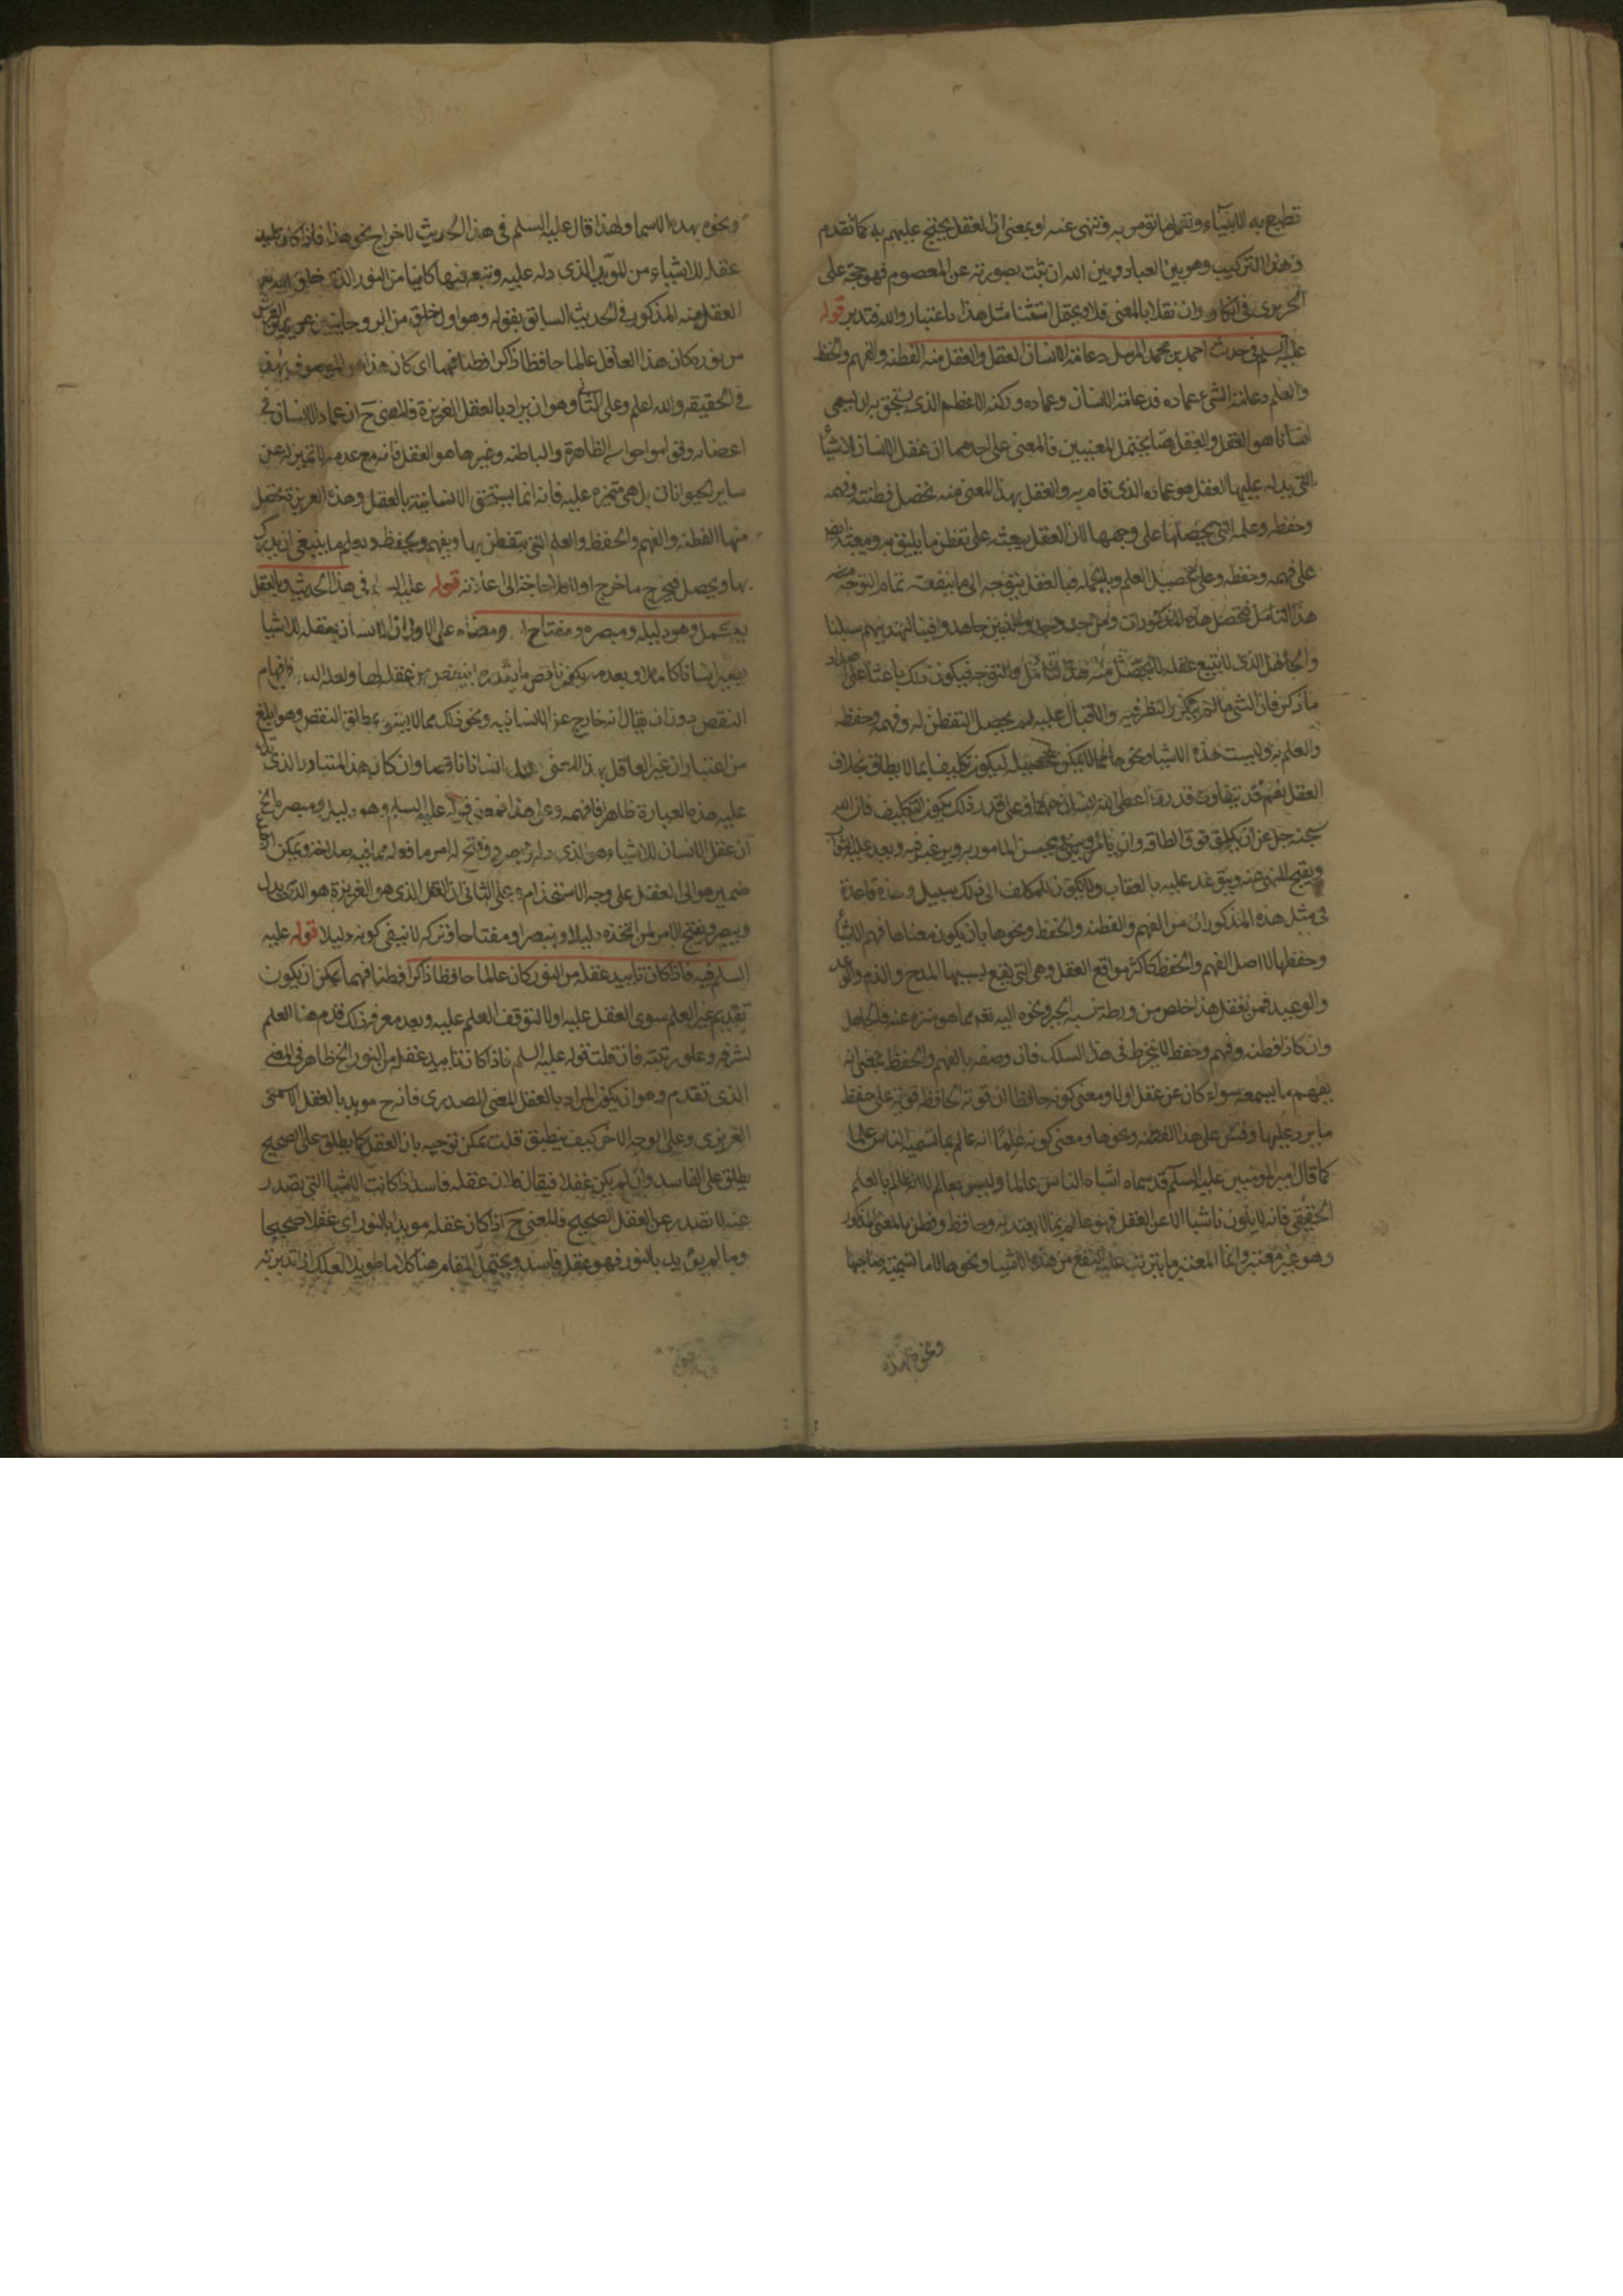 تطيع به الانبياء وتفعل ما تومر به وتنهى عنه او بمعنى ان العقل يحتج عليهم به كما تقدم
وهذا التركيب وهو بين العباد وبين الله ان ثبت بصورته عن المعصوم فهو حجة على
الحريرى فى انكاره وان نقل بالمعنى فلا ويحتمل استثنا مثل هذا باعتبار والله فتدبر قوله
عليه السلم فى حديث احمد بن محمد المرسل دعامة الانسان العقل والعقل منه الفطنه والفهم والحفظ
والعلم دعامة الشئ عماده فدعامة الانسان وعماده وركنه الاعظم الذى يستحق به ان يسمى
انسانا هو العقل والعقل هنا يحتمل المعنيين فالمعنى على احدهما ان عقل الانسان الاشيا
التى يدله عليها العقل هو عماده الذى قام به والعقل بهذا المعنى منه تحصل فطنته وفهمه
وحفظه وعلمه التى يحصلها على وجهها لان العقل يبعثه على تفطن ما يليق به ويبعثه ايضا
على فهمه وحفظه وعلى تحصيل العلم وبالجمله فبالعقل يتوجه الى ما ينفعه تمام التوجه
هذا التامل فتحصل هذه المذكورات ومن جد وجد والذين جاهدوا فينا لنهدينهم سبلنا
والجاهل الذى لا يتبع عقله لا يحصل منه هذا التامل والتوجه فيكون ذلك باعثا على
ما ذكر فان الشئ ما لم يكن النظر فيه والاقبال عليه لم يحصل التفطن له وفهمه وحفظه
والعلم به وليست هذه الاشيا ونحوها مما لا يمكن تحصيله ليكون تكليفا بما لا يطاق بخلاف
العقل نعم قد يتفاوت قدر ما اعطى الله الانسان وعلى قدر ذلك يكون التكليف فان الله
سبحنه جل عن ان يكلف فوق الطاقه وان يامر وينهى ويحسن المامور به ويرغب فيه ويعد عليه الثواب
ويقبح المنهى عنه ويتوعد عليه بالعقاب ولا يكون للمكلف الى ذلك سبيل وهذه قاعدة
فى مثل هذه المذكورات من الفهم والفطنه والحفظ ونحوها بان يكون معناها فهم الاشيا
وحفظها لا اصل الفهم والحفظ كاكثر مواقع العقل وهى التى يقع بسببها المدح والذم والوعد
والوعيد فمن تعقل هذا خلص من ورطة نسبه الجبر ونحوه اليه تعم مما هو منزه عنه فالجاهل
وان كان ذا فطنه وفهم وحفظ لا ينخرط فى هذا السلك فان وصفه بالفهم والحفظ بمعنى انه
يفهم ما يسمعه سواء كان عن عقل او لا ومعنى كونه حافظا ان قوته الحافظة قويه على حفظ
ما يرد عليها وقس على هذا الفطنه ونحوها ومعنى كونه عالما انه عالم بما تسميه الناس علما
كما قال امير المومنين عليه السلم قد سماه اشباه الناس عالما وليس بعالم لانه عالم بالعلم
الحقيقى فانه لا يكون ناشيا الا عن العقل فهو عالم بما لا يعتد به وحافظ وفطن بالمعنى المذكور
وهو غير معتبر وانما المعتبر ما يترتب عليه النفع من هذه الاشيا ونحوها لا ما تسميته صاحبها
ونحوه بهذه
ونحوه بهذه الاسما ولهذا قال عليه السلم فى هذا الحديث لاخراج نحو هذا فاذا كان تاييد
عقله للاشياء من المويد الذى دله عليه وتبعه فيها كاينا من النور الذى خلق الله تعم
العقل منه المذكور فى الحديث السابق بقوله وهو اول خلق من الروحانيين عن يمين العرش
من نوره كان هذا العاقل عالما حافظا ذاكرا فطنا فهما اى كان هذا هو الموصوف بهذه
فى الحقيقه والله اعلم وعلى الثانى وهو ان يراد بالعقل الغريزة فالمعنى ح ان عماد الانسان فى
اعضائه وقوامه وحواسه الظاهرة والباطنه وغيرها هو العقل فانه مع عدمه لا تمييز له عن
ساير الحيوانات بل هى متميزه عليه فانه انما يستحق الانسانية بالعقل وهذه الغريزة تحصل
منها الفطنه والفهم والحفظ والعلم التى يتفطن بها ويفهم ويحفظ ويعلم ما ينبغى ان يدرك
بها ويحصل فيخرج ما خرج اولا فلا حاجة الى اعادته قوله عليه السلم فى هذا الحديث وبالعقل
يكمل وهو دليله ومبصره ومفتاح امره ومعناه على الاول ان الانسان بعقله للاشيا
يصير انسانا كاملا وبعدمه يكون ناقصا بقدر ما ينقص من عقله لها ولعله
النقص دون ان يقال انه خارج عن الانسانيه ونحو ذلك مما لا يبتنى عليه اطلاق النقص وهو ابلغ
من اعتبار ان غير العاقل بهذا المعنى ليس انسانا ناقصا وان كان هذا المتبادر الذى تدل
عليه هذه العبارة ظاهرا فافهمه وعلى هذا فمعنى قوله عليه السلم وهو دليله ومبصره الخ
ان عقل الانسان للاشياء هو الذى دله وبصره وفتح له امر ما فعله مما فيه صلاحه ويمكن ارجاع
ضمير هو الى العقل على وجه الاستخدام وعلى الثانى ان العقل الذى هو الغريزة هو الذى يدل
ويبصر ويفتح الامر لمن اتخذه دليلا ومبصرا ومفتاحا وتركه لا ينفى كونه دليلا قوله عليه
السلم فيه فاذا كان تاييد عقله من النور كان عالما حافظا ذاكرا فطنا فهما يمكن ان يكون
تقديم غير العلم سوى العقل عليه اولا لتوقف العلم عليه وبعد معرفة ذلك قدم هنا العلم
لشرفه وعلو رتبته فان قلت قوله عليه السلم فاذا كان تاييد عقله من النور الخ ظاهر فى المعنى
الذى تقدم وهو ان يكون المراد بالعقل المعنى المصدرى فانه ح مويد بالعقل الاسمى
الغريزى وعلى الوجه الاخر كيف ينطبق قلت يمكن توجيهه بان العقل كما يطلق على الصحيح
يطلق على الفاسد وان لم يكن عقلا فيقال فلان عقله فاسد اذا كانت الاشيا التى تصدر
عنه لا تصدر عن العقل الصحيح فالمعنى ح اذا كان عقله مويدا بالنور اى عقلا صحيحا
وما لم يؤيد بالنور فهو عقل فاسد ويحتمل المقام هنا كلاما طويلا لعلك ان تدبرته